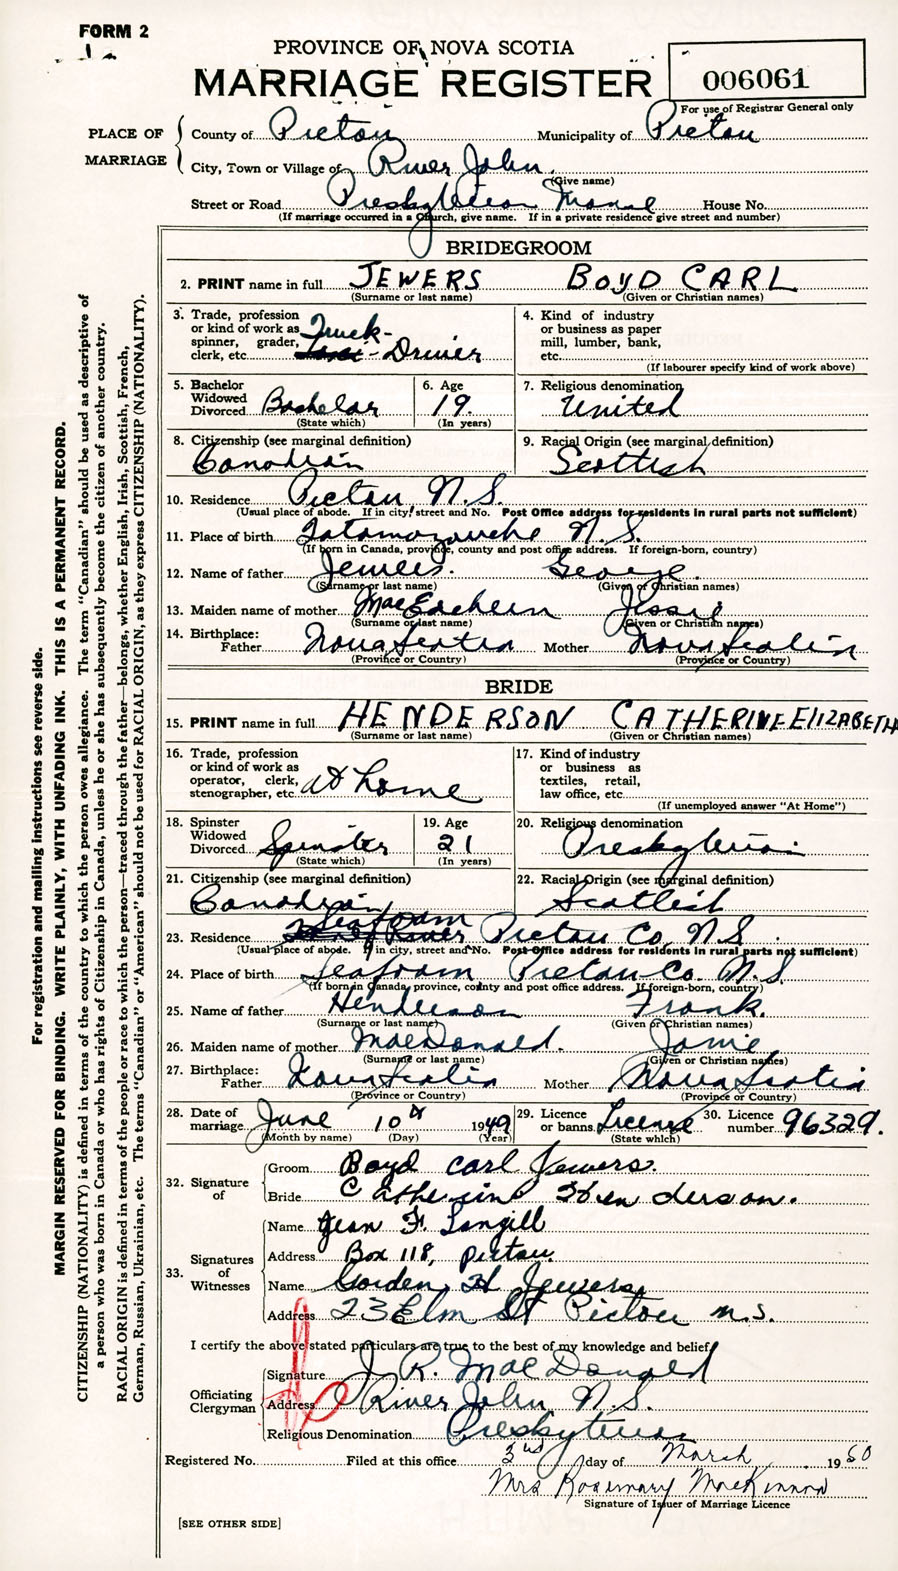 FORM 2
PROVINCE OF NOVA SCOTIA
MARRIAGE REGISTER
006061
For use of Registrar General only
PLACE OF MARRIAGE
County of Pictou Municipality of Pictou
City, Town or Village of River John.
(Give name)
Street or Road Presbyterian Manse House No.
(If marriage occurred in a Church, give name. If in a private residence give street and number)
BRIDEGROOM
2. PRINT name in full JEWERS BOYD CARL
(Surname or last name) (Given or Christian names)
3. Trade, profession or kind of work as spinner, grader, clerk, etc. Truck- Driver
4. Kind of industry or business as paper mill, lumber, bank, etc.
(If labourer specify kind of work above)
5. Bachelor Widowed Divorced Bachelor
(State which)
6. Age 19.
(In years)
7. Religious denomination United
8. Citizenship (see marginal definition) Canadian
9. Racial Origin (see marginal definition) Scottish
10. Residence Pictou N.S.
(Usual place of abode. If in city, street and No. Post Office address for residents in rural parts not sufficient)
11. Place of birth Tatamagouche N.S.
(If born in Canada, province, county and post office address. If foreign-born, country)
12. Name of father Jewers. George.
(Surname or last name) (Given or Christian names)
13. Maiden name of mother MacEachern Jessie
(Surname or last name) (Given or Christian names)
14. Birthplace: Father Nova Scotia Mother Nova Scotia
(Province or Country) (Province or Country)
BRIDE
15. PRINT name in full HENDERSON CATHERINE ElIZABETH
(Surname or last name) (Given or Christian names)
16. Trade, profession or kind of work as operator, clerk, stenographer, etc. at home
17. Kind of industry or business as textiles, retail, law office, etc.
(If unemployed answer "At Home")
18. Spinster Widowed Divorced Spinster
(State which)
19. Age 21
(In years)
20. Religious denomination Presbyterian
21. Citizenship (see marginal definition) Canadian
22. Racial Origin (see marginal definition) Scottish
23. Residence Seafoam Pictou Co. N.S.
(Usual place of abode. If in city, street and No. Post Office address for residents in rural parts not sufficient)
24. Place of birth Seafoam Pictou Co. N.S.
(If born in Canada, province, county and post office address. If foreign-born, country)
25. Name of father Henderson Frank.
(Surname or last name) (Given or Christian names)
26. Maiden name of mother MacDonald. Jamie
(Surname or last name) (Given or Christian names)
27. Birthplace: Father Nova Scotia Mother Nova Scotia
(Province or Country) (Province or Country)
28. Date of marriage June 10th 1949
(Month by name) (Day) (Year)
29. Licence or banns License
(State which)
30. Licence number 96329.
32. Signature of
Groom Boyd Carl Jewers.
Bride Catherine Henderson.
33. Signatures of Witnesses
Name Jean F. Langill
Address Box 118, Pictou.
Name Gorden H Jewers
Address 23 Elm St Pictou n.s.
I certify the above stated particulars are true to the best of my knowledge and belief.
Officiating Clergyman
Signature J. R. MacDonald
Address River John N.S.
Religious Denomination Presbyterian
Registered No. Filed at this office 3rd day of March 1960
Mrs Rosemary MacKinnon
Signature of Issuer of Marriage Licence
[SEE OTHER SIDE]
For registration and mailing instructions see reverse side.
MARGIN RESERVED FOR BINDING. WRITE PLAINLY, WITH UNFADING INK. THIS IS A PERMANENT RECORD.
CITIZENSHIP (NATIONALITY) is defined in terms of the country to which the person owes allegiance. The term "Canadian" should be used as descriptive of
a person who was born in Canada or who has rights of Citizenship in Canada, unless he or she has subsequently become the citizen of another country.
RACIAL ORIGIN is defined in terms of the people or race to which the person—traced through the father—belongs, whether English, Irish, Scottish, French,
German, Russian, Ukrainian, etc. The terms "Canadian" or "American" should not be used for RACIAL ORIGIN, as they express CITIZENSHIP (NATIONALITY).